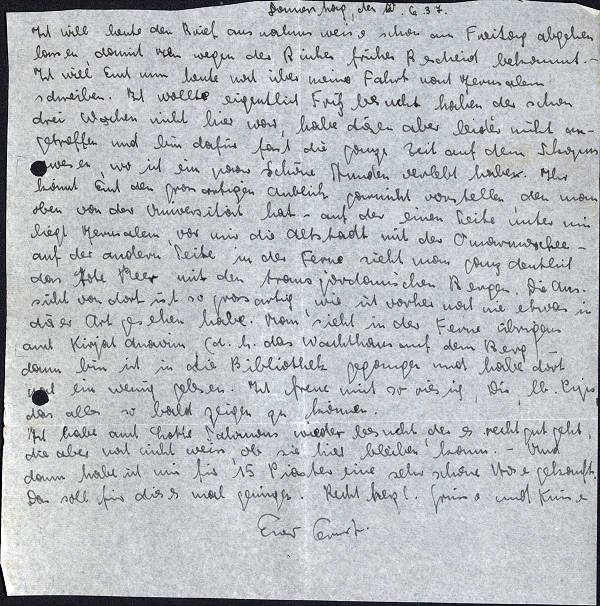 Donnerstag, den 10. 6. 37.
Ich will heute den Brief ausnahmsweise schon am Freitag abgehen
lassen, damit Ihr wegen der Bücher früher Bescheid bekommt. -
Ich will Euch nun heute noch über meine Fahrt nach Jerusalem
schreiben. Ich wollte eigentlich Fritz besucht haben der schon
drei Wochen nicht hier war, habe diesen aber leider nicht an-
getroffen und bin dafür fast die ganze Zeit auf dem Skopus
gewesen, wo ich ein paar schöne Stunden verlebt habe. Ihr
könnt Euch den grossartigen Anblick garnicht vorstellen den man
oben von der Universität hat - auf der einen Seite unter mir
liegt Jerusalem vor mir die Altstadt mit der Omarmoschee -
auf der andern Seite in der Ferne sieht man ganz deutlich
das Tote Meer mit den transjordanischen Bergen. Die Aus-
sicht von dort ist so grossartig wie ich vorher noch nie etwas in
dieser Art gesehen habe. Man sieht in der Ferne übrigens
auch Kirjat Anavim (d. h. das Wachthaus auf dem Berg)
dann bin ich in die Bibliothek gegangen und habe dort
noch ein wenig gelesen. Ich freue mich so riesig, Dir, lb.
das alles so bald zeigen zu können.
Ich habe auch Lotte Salomons wieder besucht der es recht gut geht,
die aber noch nicht weiss ob sie hier bleiben kann. - Und
dann habe ich mir für 15 Piaster eine sehr schöne Hose gekauft.
Das soll für dieses mal genügen. Recht herzl. Grüsse und Küsse
Euer Ernst.